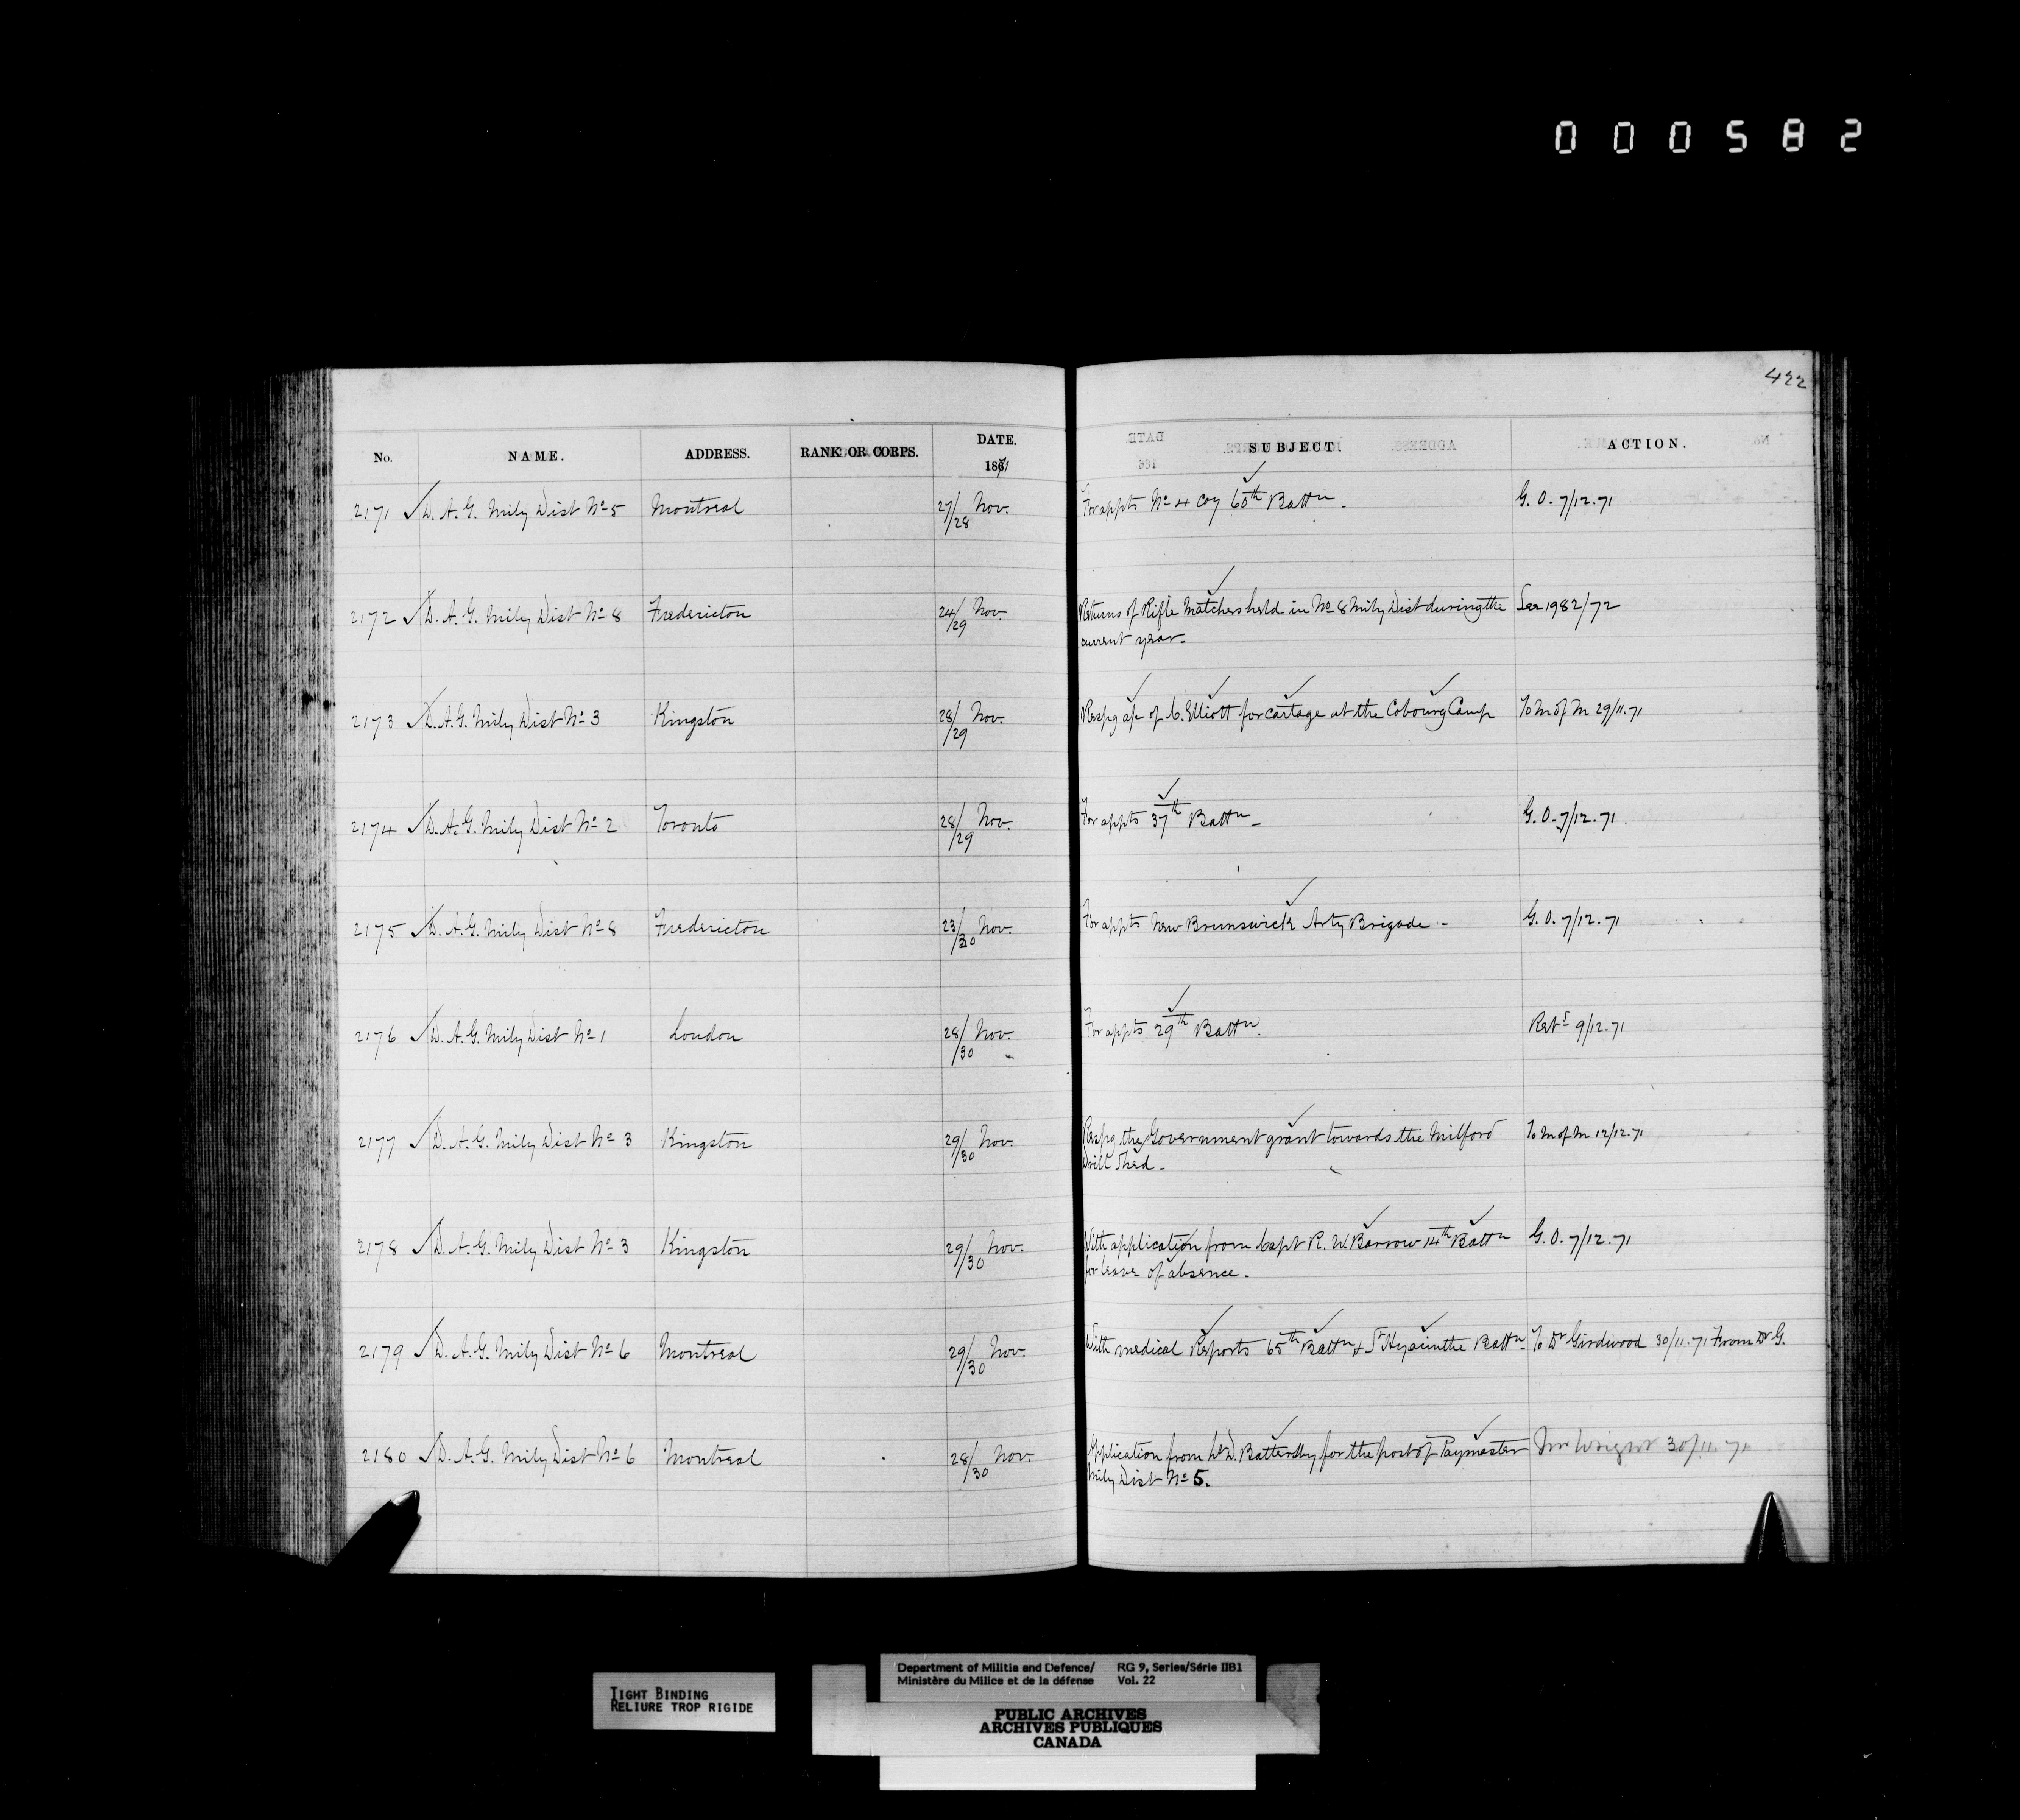 000582
422
No. NAME. ADDRESS. RANK OR CORPS. DATE. 1871 SUBJECT. ACTION.
2171 D. A. G. Mily Dist No 5 Montreal 27/28 Nov. For appts No 4 Coy 60th Battn. G. O. 7/12.71
2172 D. A. G. Mily Dist No 8 Fredericton 24/29 Nov. Returns of Rifle Matches held in No 8 Mily Dist during the See 1982/72
current year.
2173 D. A. G. Mily Dist No 3 Kingston 28/29 Nov. Respg a/c of C. Elliott for cartage at the Cobourg Camp To M of M 29/11.71
2174 D. A. G. Mily Dist No 2 Toronto 28/29 Nov. For appts 37th Battn G. O. 7/12.71
2175 D. A. G. Mily Dist No 8 Fredericton 23/30 Nov. For appts New Brunswick Arty Brigade - G. O. 7/12.71
2176 D. A. G. Mily Dist No 1 London 28/30 Nov. For appts 29th Battn. Retd 9/12.71
2177 D. A. G. Mily Dist No 3 Kingston 29/30 Nov. Respg the Government grant towards the Milford To M of M 12/12.71
Drill Shed -
2178 D. A. G. Mily Dist No 3 Kingston 29/30 Nov. With application from Capt R. W. Barrow 14th Battn G. O. 7/12.71
for leave of absence.
2179 D. A. G. Mily Dist No 6 Montreal 29/30 Nov. With medical Reports 65th Battn & St Hyacinthe Battn. To Dr Girdwood 30/11.71 From Dr G.
2180 D. A. G. Mily Dist No 6 Montreal 28/30 Nov. Application from Lt D. Battersby for the post of Paymaster Wright 30/11.71
Mily Dist No 5.
TIGHT BINDING
RELIURE TROP RIGIDE
Department of Militia and Defence/ RG 9, Series/Série IIB1
Ministère du Milice et de la défense Vol. 22
PUBLIC ARCHIVES
ARCHIVES PUBLIQUES
CANADA